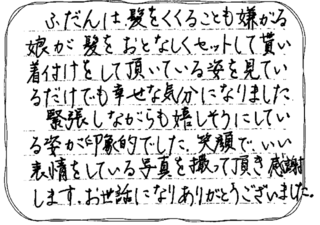 ふだんは髪をくくることも嫌がる
娘が髪をおとなしくセットして貰い
着付けをして頂いている姿を見てい
るだけでも幸せな気分になりました
緊張しながらも嬉しそうにしてい
る姿が印象的でした。笑顔でいい
表情をしている写真を撮って頂き感謝
します。お世話になりありがとうございました。